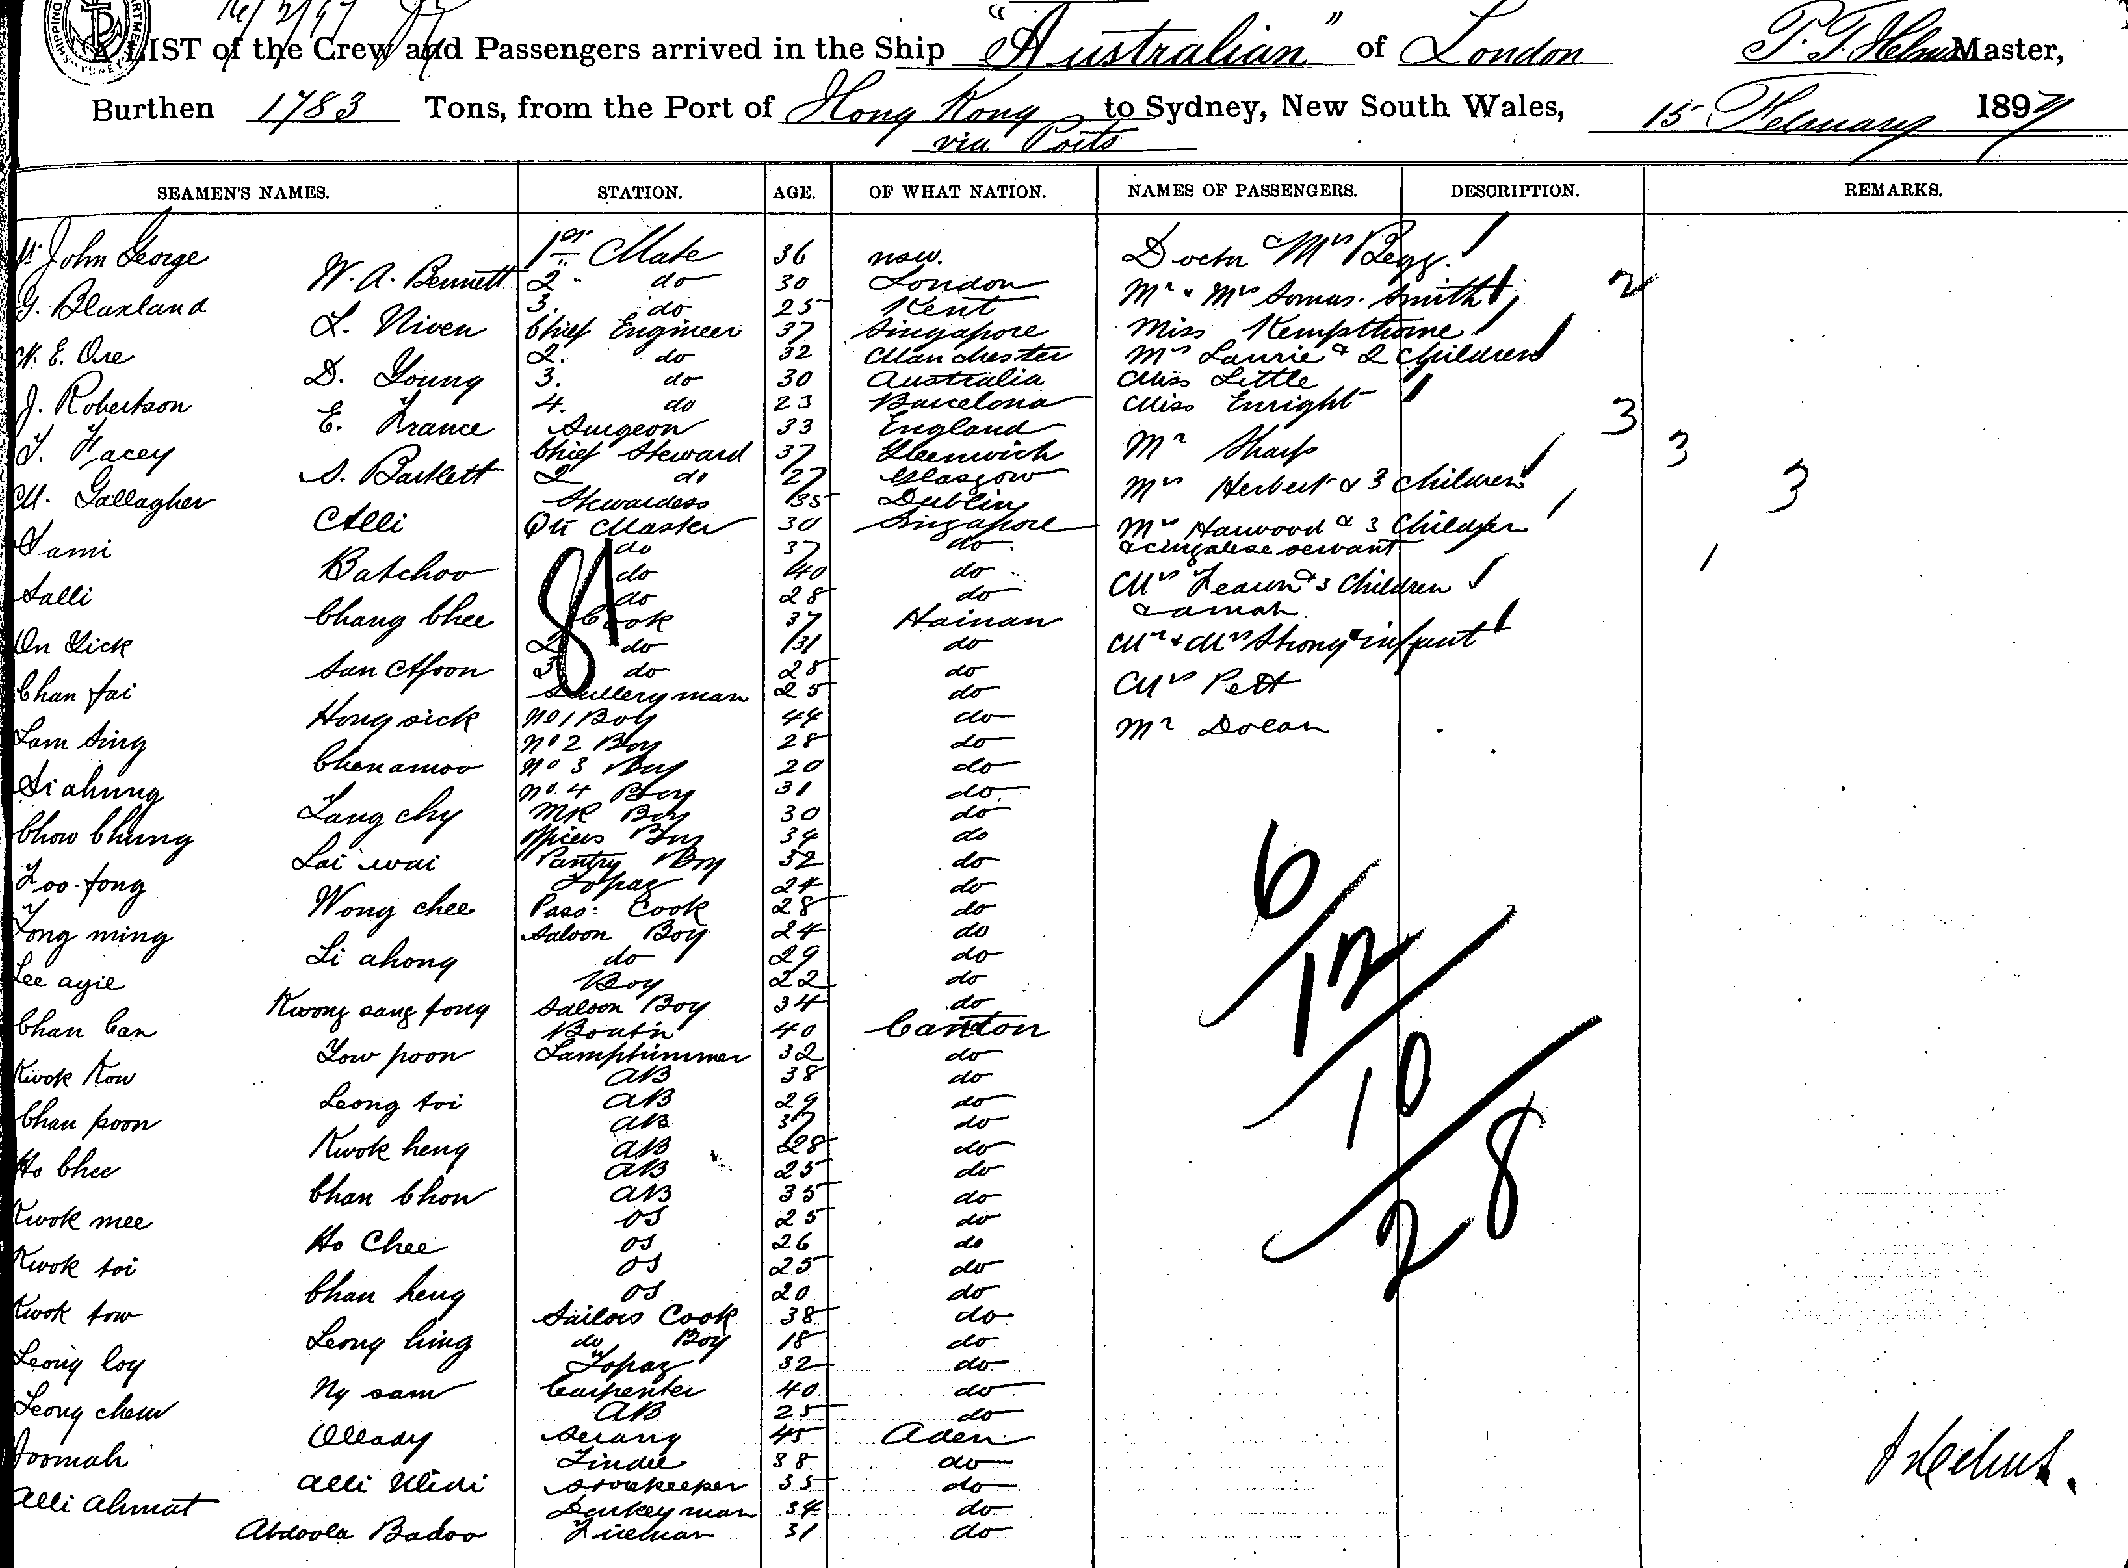 16/2/97
A LIST of the Crew and Passengers arrived in the Ship "Australian" of London P. T. Helms Master,
Burthen 1783 Tons, from the Port of Hong Kong to Sydney, New South Wales, 15 February 1897
via Ports
SEAMEN'S NAMES. STATION. AGE. OF WHAT NATION. NAMES OF PASSENGERS. DESCRIPTION. REMARKS.
John George 1st Mate 36 nsw. Doctr Mrs Begg.
W. A. Bennett 2 do 30 London Mr & Mrs Somas. Smith 2
G. Blaxland 3. do 25 Kent Miss Kempthorne
L. Niven Chief Engineer 37 Singapore Mrs Laurie & 2 Children
W. E. Ore 2. do 32 Manchester Miss Little
D. Young 3. do 30 Australia Miss Enright 3
J. Robertson 4. do 23 Barcelona Mr Sharp 3
E. France Surgeon 33 England Mrs Herbert & 3 Children 3
T. Facey Chief Steward 37 Greenwich Mrs Harwood & 3 Children
S. Bartlett 2 do 27 Glasgow & cingalese servant 1
M. Gallagher Stewardess 35 Dublin Mrs & 3 Children
Alli Qtr Master 30 Singapore & amah
Sami do 37 do Mr & Mrs Strong & infant
Batchoo do 40 do Mrs Pett
Salli do 28 do Mr Dolan
Chang Chee Cook 37 Hainan
On Yick 2 do 31 do
San Moon 3 do 28 do
Chan fai Scullery man 25 do
Hong sick No 1 Boy 44 do
Lam Sing No 2 Boy 28 do
Chen amoo No 3 Boy 20 do
Si ahung No. 4 Boy 31 do
Lang chy MR Boy 30 do
Chow Chung Boy 34 do
Lai wai Pantry Boy 32 do
Foo fong Topaz 24 do
Wong chee Pass: Cook 28 do
Fong ming Saloon Boy 24 do
Li ahong do 29 do
Lee ayie Boy 22 do
Kwong sang fong Saloon Boy 34 do
Chan Can Boats'n 40 Canton
Yow poon Lamptrimmer 32 do
Kwok Kow AB 38 do
Leong toi AB 29 do
Chan poon AB 37 do
Kwok heng AB 28 do
Ho Chee AB 25 do
Chan Chow AB 35 do
Kwok mee OS 25 do
Ho Chee OS 26 do
Kwok toi OS 25 do
Chan heng OS 20 do
Kwok tow Sailors Cook 38 do
Leong hing do Boy 18 do
Leong loy Topaz 32 do
Ny sam Carpenter 40 do
Leong chew AB 25 do
Ollady Serang 45 Aden
Joomah Tindle 38 do
Alli Ulidi Storekeeper 35 do
Alli Ahmat Donkeyman 34 do
Abdoola Badoo Fireman 31 do
6/12/10/28